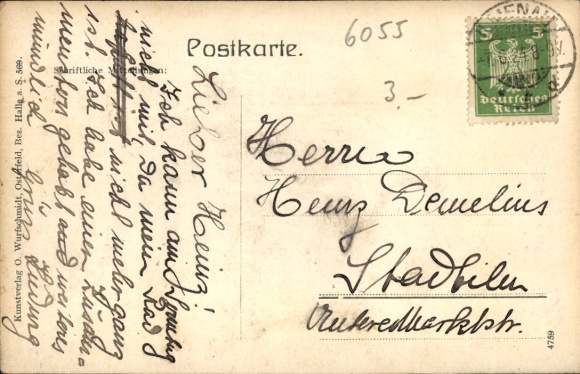 Postkarte.
6055
3.-
5 5
deutsches
Reich
Schriftliche Mitteilungen:
Lieber Heinz!
Ich kann am Sonntag
nicht mit, da mein Rad
nicht mehr ganz
ist. Ich habe einen Zusam-
menstoss gehabt weiteres
mündlich
Gruß Ludwig
Herrn
Heinz Demelius
Stadtilm
Untere Marktstr.
Kunstverlag O. Wurfschmidt, Osterfeld, Bez. Halle a. S. 569.
4759